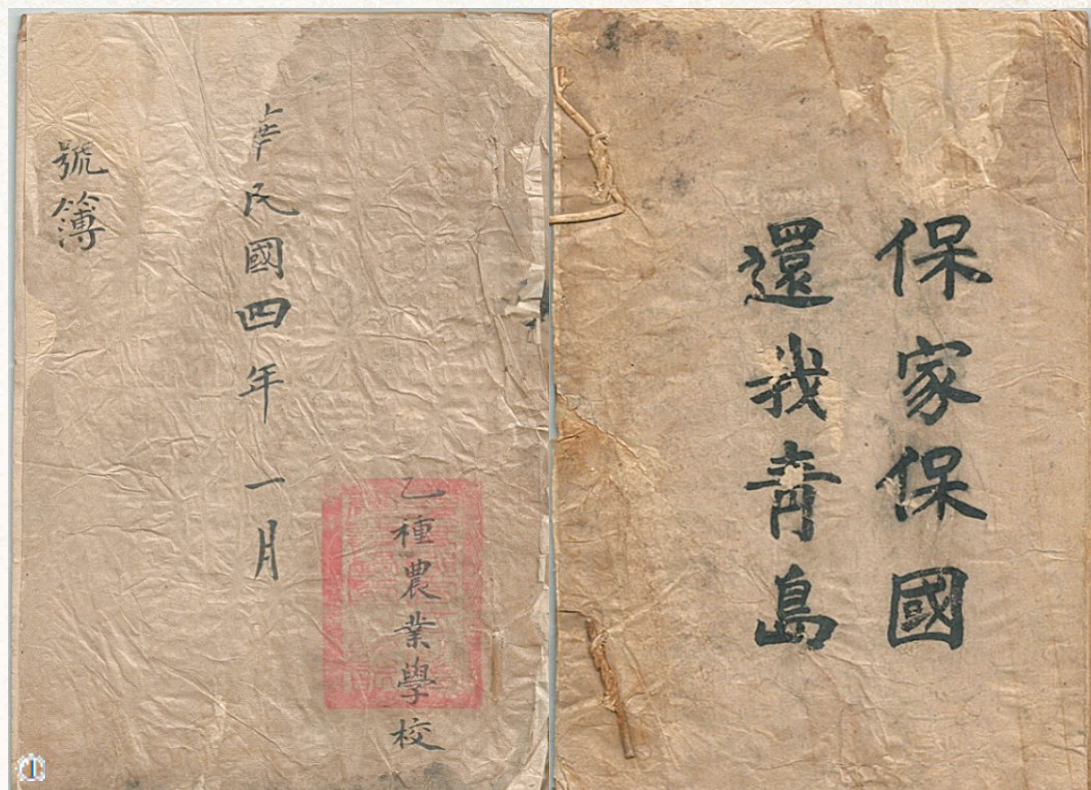 保家保國
還我青島
乙種農業學校
華民國四年一月
號簿